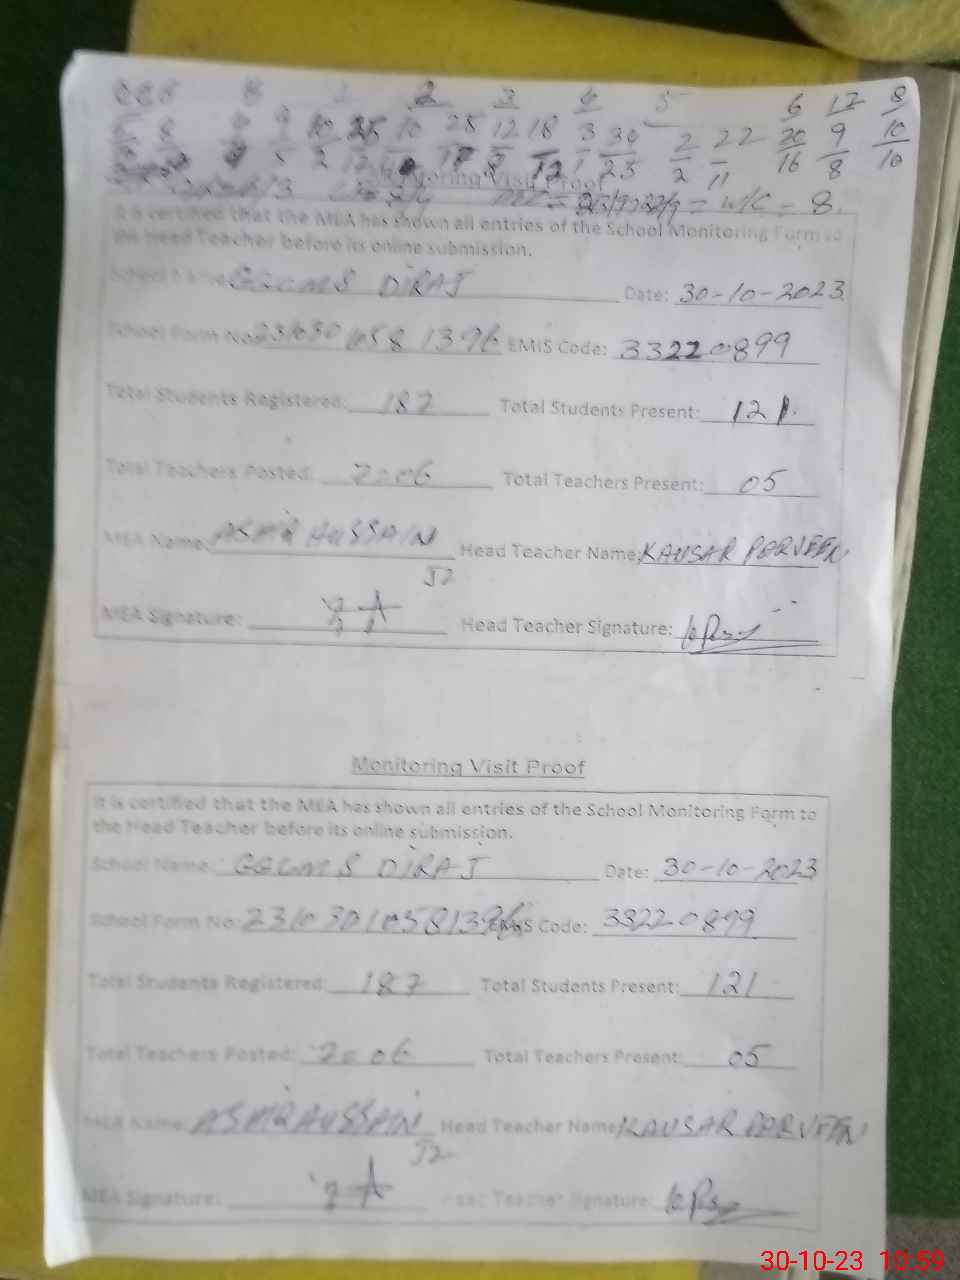 8 1 2 3 4 5 6 17 8
9 10 25 10 25 12 18 3 34 2 22 20 9 10
2 12 18 12 1 25 2 11 16 8 10
Monitoring Visit Proof = W/C - 8.
It is certified that the MEA has shown all entries of the School Monitoring Form to
the Head Teacher before its online submission.
School Name: GGCMS DIRAJ Date: 30-10-2023
School Form No: EMIS Code: 33220899
Total Students Registered: 187 Total Students Present: 121
Total Teachers Posted: 06 Total Teachers Present: 05
MEA Name: HUSSAIN Head Teacher Name: KAUSAR PERVEEN
J2
MEA Signature: Head Teacher Signature:
Monitoring Visit Proof
It is certified that the MEA has shown all entries of the School Monitoring Form to
the Head Teacher before its online submission.
School Name: GGCMS DIRAJ Date: 30-10-2023
School Form No: EMIS Code: 33220899
Total Students Registered: 187 Total Students Present: 121
Total Teachers Posted: 06 Total Teachers Present: 05
MEA Name: HUSSAIN Head Teacher Name: KAUSAR PERVEEN
J2
MEA Signature: Head Teacher Signature:
30-10-23 10:59